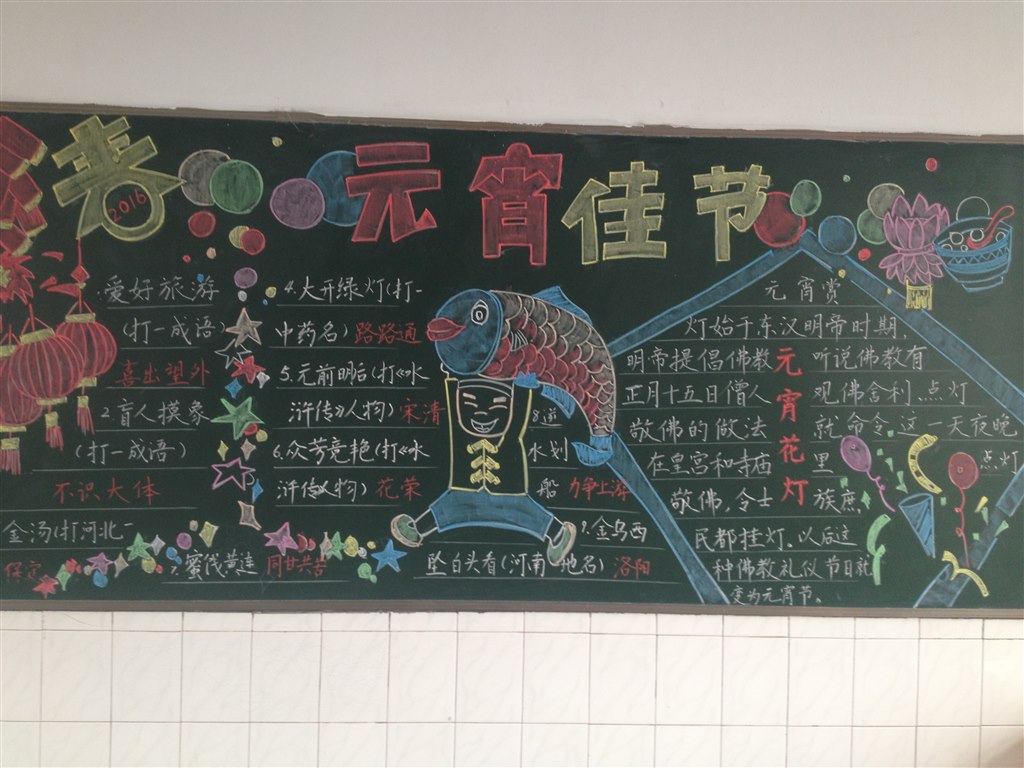 春
2016
元宵佳节
爱好旅游
(打一成语)
喜出望外
2盲人摸象
(打一成语)
不识大体
金汤(打河北一
保定
4.大开绿灯(打一
中药名)路路通
5.元前明后(打《水
浒传》人物)宋清
6.众芳竞艳(打《水
浒传》人物)花荣
7.蜜饯黄连 同甘共苦
8.逆
水划
船 力争上游
9.金乌西
坠白头看(河南一地名)洛阳
元宵赏
灯始于东汉明帝时期,
明帝提倡佛教 听说佛教有
正月十五日僧人 观佛舍利、点灯
敬佛的做法 就命令这一天夜晚
在皇宫和寺庙 里 点灯
敬佛,令士 族庶
民都挂灯。以后这
种佛教礼仪节日就
变为元宵节。
元宵花灯